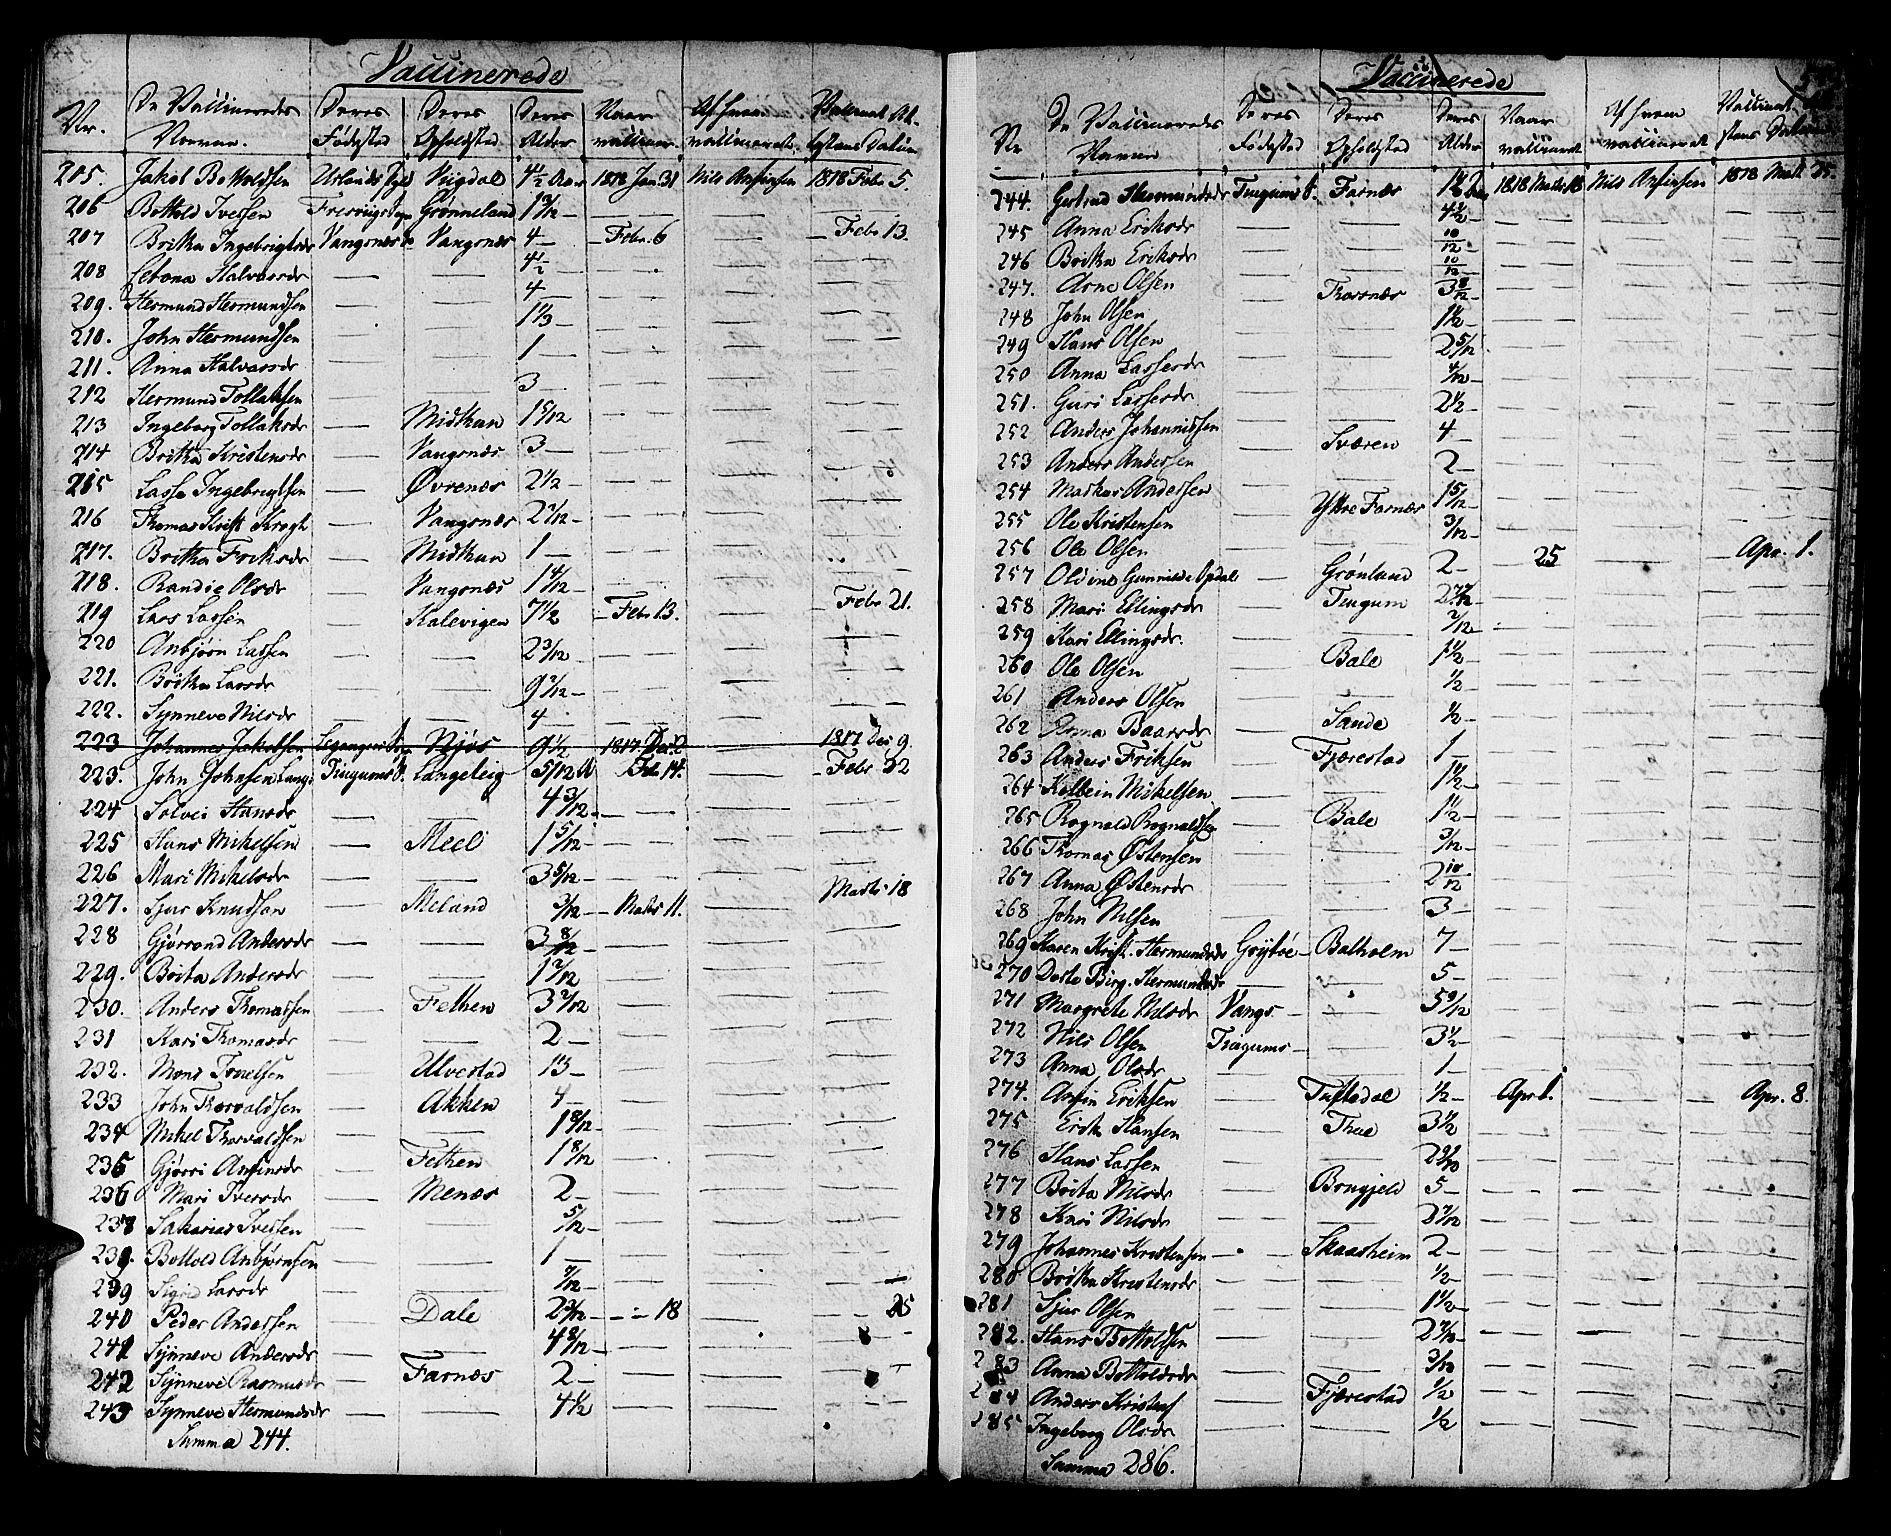 Vaccinerede
Nr. De Vaccineredes Navne. Deres Fødested Deres Opholdsted Deres Alder Naar vaccineret Af hvem vaccineret. Vaccinat. At- testens Datum
205. Jakob Bottolfsen Vigdal 4 1/2 Aar 1818 Jan. 31 Nils Ansinsen 1818 Febr. 5.
206 Bottold Ivessen Grønneland 1 9/12 — — — —
207 Britha Ingebrigtsdr Vangsnæs Vangsnæs 4 — — Febr. 6 — — Febr. 13.
208 Halvarsdr — — 4 1/2 — — —
209. Hermund Hermundsen — — 4 — — —
210. John Hermundsen — — 1 1/3 — — —
211. Anna Halvarsdr — — 1 — — —
212 Hermund Tollaksen — — 3 — — —
213 Ingeborg Tollaksdr — Midthun 1 5/12 — — —
214 Britha Kristensdr — Vangsnæs 3 — — —
215 Lasse Ingebrigtsen — Øvrenæs 2 1/2 — — —
216 Thomas Krist Krogh — Vangsnæs 2 7/12 — — —
217. Britha Eriksdr — Midthun 1 — — —
218. Randie Olsdr — Vangsnæs 1 4/12 — — —
219 Lars Lassen — Kalevigen 7 1/2 — Febr. 13. — Febr. 21.
220 Anbjørn Lassen — — 2 3/12 — — —
221. Britha Larsdr — — 9 2/12 — — —
222. Synneve Nilsdr — — 4 — — —
223 Johannes Jakobsen Njøs 9 1/2 1817 Dec. 2 — 1817 Dec 9.
223. John Johnsen Tjugums S. Langeteig 5/12 A Feb. 14. — — Febr 22
224 Solvei Hansdr — — 4 3/12 — — —
225 Hans Mikelsen — Meel 1 5/12 — — —
226 Mari Mikelsdr — — 3 5/12 — — —
227. Sjur Knudsen — Meland 3/12 — Marts 11. — Marts 18
228 Gjørrond Andersdr — — 3 8/12 — — —
229. Brita Andersdr — — 1 2/12 — — —
230. Anders Thomassen — Fethen 3 2/12 — — —
231 Kari Thomasdr — — 2 — — —
232. Mons — Ulvestad 13 — — —
233 John Thorvaldsen — Akken 4 — — —
234 Mikel Thorvaldsen — — 1 8/12 — — —
235 Gjørri Ansinsdr — Fethen 1 8/12 — — —
236 Mari Iversdr — Menæs 2 — — —
237 Sakarias Ivessen — — 5/12 — — —
238. Bottold Anbjørnsen — — 1 — — —
239 Sigrid Larsdr — — 7/12 — — —
240 Peder Andersen — Dale 2 3/12 — 18 — — 25
241 Synneve Andersdr — — 4 8/12 — — —
242 Synneve Rasmusdr — Farnæs 2 — — —
243 Synneve Hermundsdr — — 4 1/2 — — —
Summa 244.
Vaccinerede
Nr De Vaccineredes Navne Deres Fødested Deres Opholdsted Deres Alder Naar vaccineret Af hvem vaccineret Vaccinat. At- stens Datum
244. Gertrud Hermundsdr Tjugums S. Farnæs 1 1/2 Aar 1818 Marts 18 Nils Ansinsen 1818 Mart. 25.
245 Anna Eriksdr — — 4 1/2 — — —
246 Britha Eriksdr — — 10/12 — — —
247. Arne Olsen — — 10/12 — — —
248 John Olsen — Thorsnæs 3 8/12 — — —
249 Hans Olsen — — 1 1/2 — — —
250 Anna Lassesdr — — 2 5/12 — — —
251. Guri Lassesdr — — 4/12 — — —
252 Anders Johannissen — — 2 1/2 — — —
253 Anders Andersen — Sværen 4 — — —
254 Markus Andersen — — 2 — — —
255 Ole Kristensen — Ytre Farnæs 1 5/12 — — —
256 Ole Olsen — — 3/12 — — —
257 Oldine Gunnilde Opdal — Grønland 2 — 25 — — Apr. 1.
258 Mari Ellingsdr — Tjugum 2 7/12 — — —
259 Kari Ellingsdr. — — 2/12 — — —
260 Ole Olsen — Bale 1 1/2 — — —
261 Anders Olsen — — 1/2 — — —
262 Anna Baarsdr — Sande 1/2 — — —
263 Anders Eriksen — Fjærestad 1 — — —
264 Kolbein Mikelsen — — 1 1/2 — — —
265 Rognald Rognaldsen — Bale 1 1/2 — — —
266 Thomas Østensen — — 3/12 — — —
267 Anna Østensdr — — 2 10/12 — — —
268 John Nilsen — — 3 — — —
269 Karen Krist. Hermundsdr Balholm 7 — — —
270 Dorte Birg. Hermundsdr — — 5 — — —
271 Margrete Nilsdr Vangs — — 5 9/12 — — —
272 Nils Olsen Tjugums — — 3 1/2 — — —
273 Anna Olsdr — — 1 — — —
274. Ansin Eriksen — Tuftedal 1/2 — Apr. 1. — — Apr. 8.
275 Erik Hansen — Thue 3 1/2 — — —
276 Hans Lassen — —
277 Brita Nilsdr — Brugjeld 5 — — —
278 Kari Nilsdr — — 2 7/12 — — —
279 Johannes Kristensen — Skaasheim 2 — — —
280 Britha Kristensdr — — 1/2 — — —
281 Sjur Olsen — — 1 1/2 — — —
282. Hans Bottolfsen — —
283 Anna Bottolfsdr — — 3/12 — — —
284 Anders Kristens — Fjærestad 1/2 — — —
285 Ingeborg Olsdr — — 1/2 — — —
Summa 286.